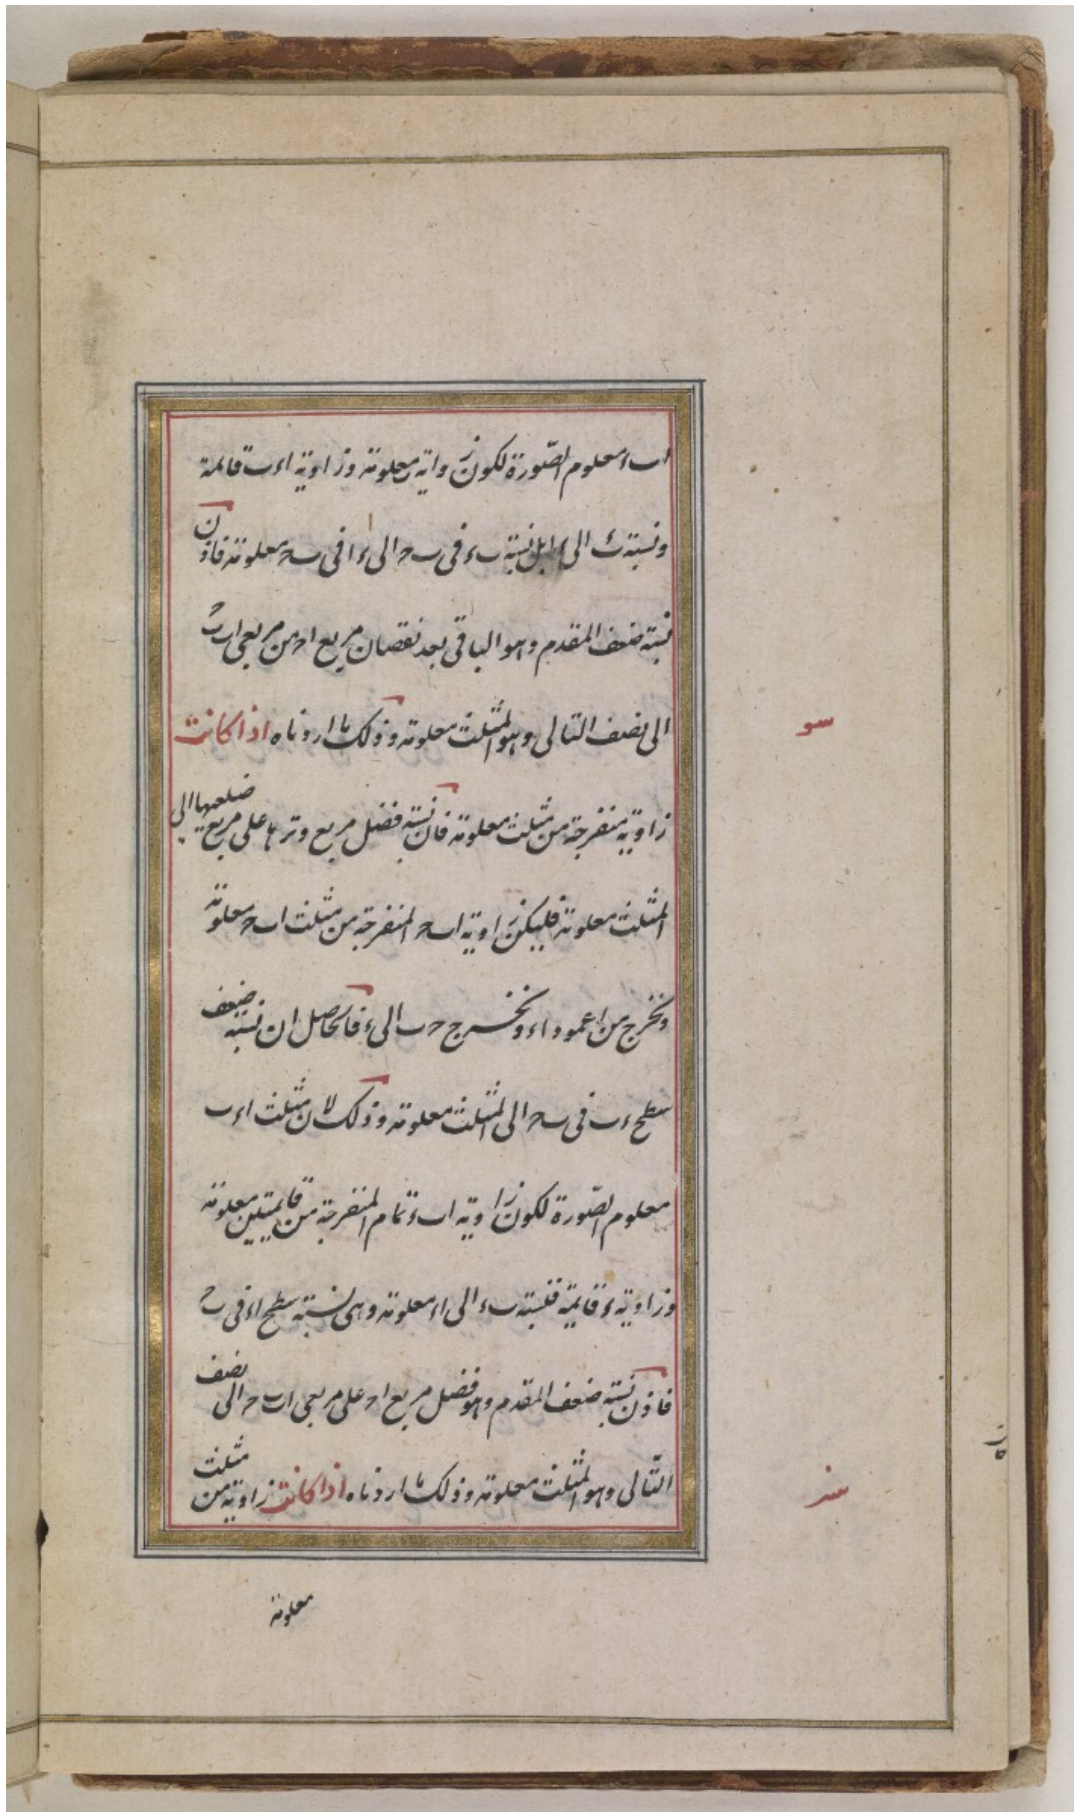 اب ء معلوم الصّورة لكون زاوية ب معلومة وزاوية ا ء ب قائمة
ونسبة ب ء الى ء ا بل نسبة ب ء فى ب ح الى ء ا فى ب ح معلومة فاذن
نسبة ضعف المقدم وهو الباقى بعد نقصان مربع ا ح من مربعى ا ب ب ح
الى نصف التالى وهو المثلث معلومة وذلك ما اردناه اذا كانت
سو
زاوية منفرجة من مثلث معلومة فان نسبة فضل مربع وترها على مربع ضلعيها الى
المثلث معلومة فليكن زاوية ا ب ح المنفرجة من مثلث ا ب ح معلومة
ونخرج من ا عمود ا ء ونخرج ح ب الى ء فالحاصل ان نسبة ضعف
سطح ء ب فى ب ح الى المثلث معلومة وذلك لان مثلث ا ء ب
معلوم الصّورة لكون زاوية ا ب ء تمام المنفرجة من قايمتين معلومة
وزاوية ء قايمة فنسبة ب ء الى ا ء معلومة وهى نسبة سطح ا ء فى ب ح
فاذن نسبة ضعف المقدم وهو فضل مربع ا ح على مربعى ا ب ب ح الى نصف
التّالى وهو المثلث معلومة وذلك ما اردناه اذا كانت زاوية من مثلث
سز
معلومة